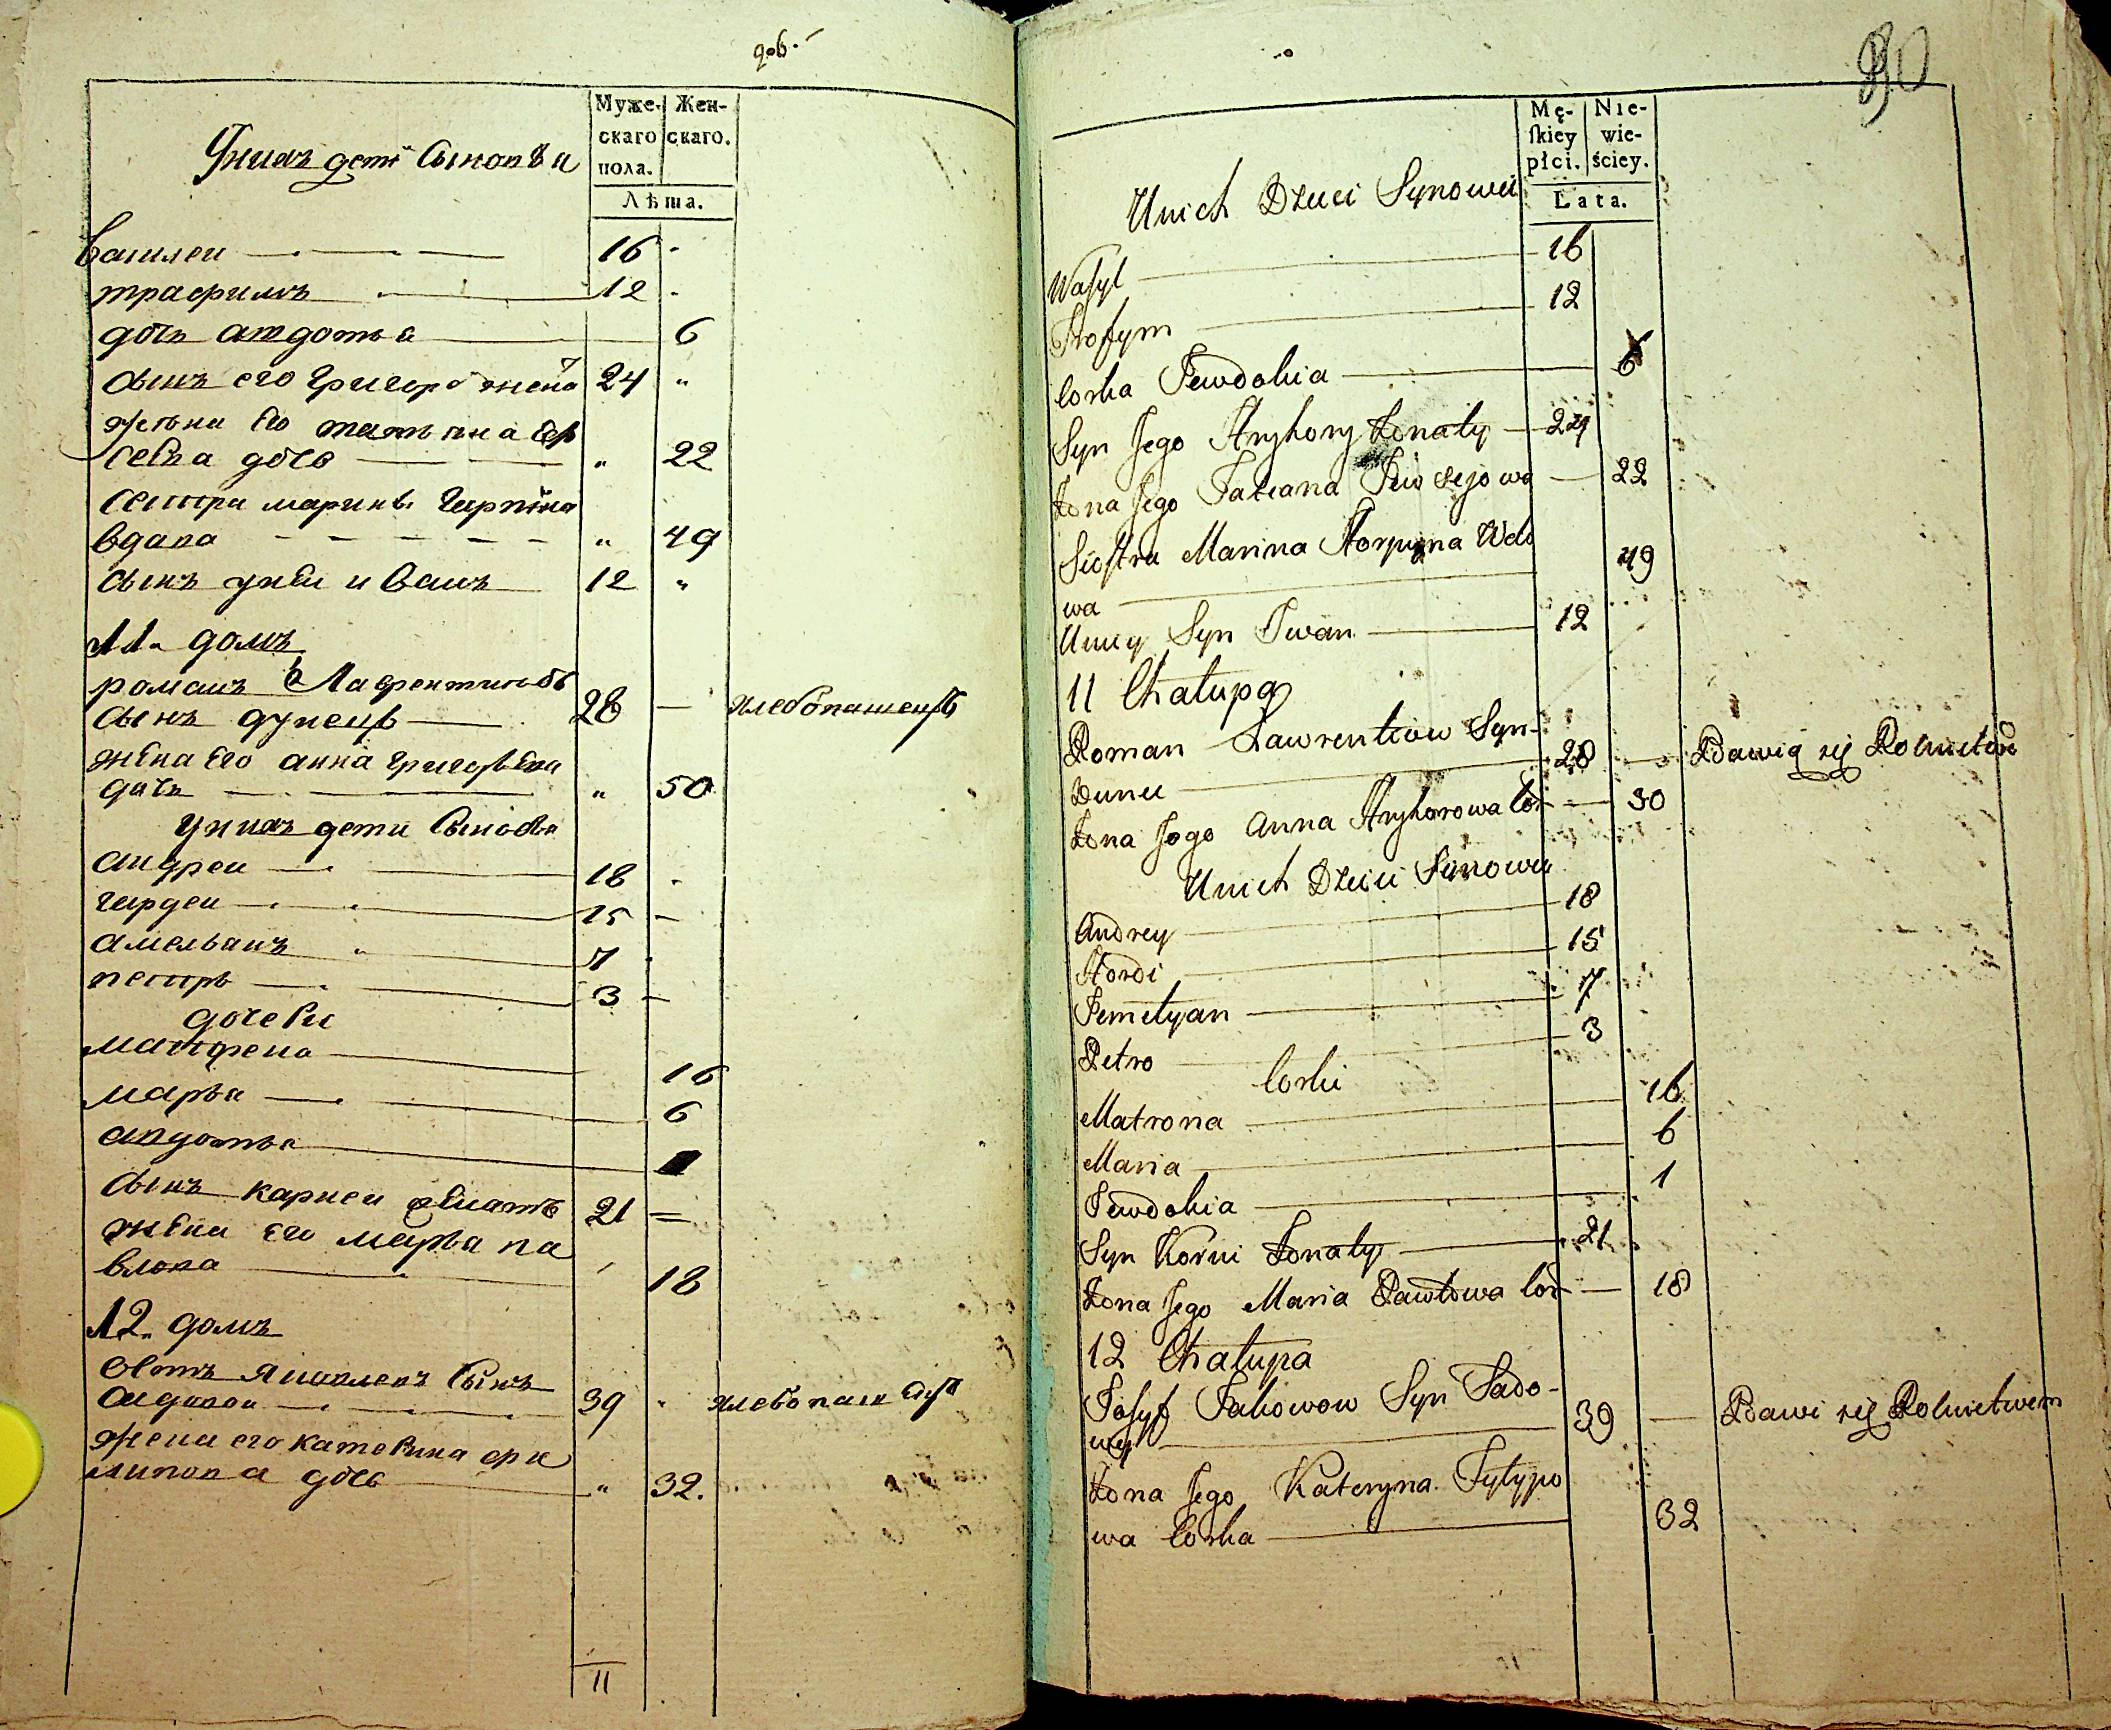 Муже-
скаго
пола.
Жен-
скаго.
Лѣта.
Унихъ дети Сыновя
Василеи 16
трафимъ 12
дочь авдотья 6
сынъ его григоре женa 24 "
жена Его татьяна
севва дочь " 22
сестра марина гарпина
вдава " 49
сынъ унеи иванъ 12 "
11. домъ
романъ Лаврентиевъ
сынъ дунецъ 28 — хлебопашецъ
жена Его анна григорьева
дочь " 50
унихъ дети Сыновя
андреи 18
гардеи 15 —
амельянъ 7
петръ 3 —
дочеRи
матрена 16
марья 6
авдотья
сынъ карнеи женатъ 21 =
жена Его марья па
влова 18
12. домъ
осипъ яковлевъ Сынъ
садовои 39 хлебопашецъ
жена его катеRина фи
липова дочь " 32.
11
90
Mę-
ſkiey
płci.
Nie-
wie-
ściey.
Lata.
Unich Dzieci Synowie
Waſyl 16
Trofym 12
Corka Jewdokia 6
Syn Jego Hryhory Żonaty 24
Żona Jego Tatiana Jewsejowa 22
Sioſtra Marina Horpyna Wdo
wa 49
Uniey Syn Iwan 12
11 Chałupa
Roman Lawrentiow Syn
Dunec 28 — Bawią się Rolnictwem
Żona Jego Anna Hryhorowa Cor — 30
Unich Dzieci Synowie
Andrey 18
Hordi 15
Jemelyan 7
Petro 3
Corki
Matrona 16
Maria 6
Jewdokia 1
Syn Korni Żonaty 21
Żona Jego Maria Pawłowa Cor — 18
12 Chałupa
Joſyf Jakowow Syn Sado-
wy 39 — Bawi się Rolnictwem
Żona Jego Kateryna Fylypo
wa Corka 32